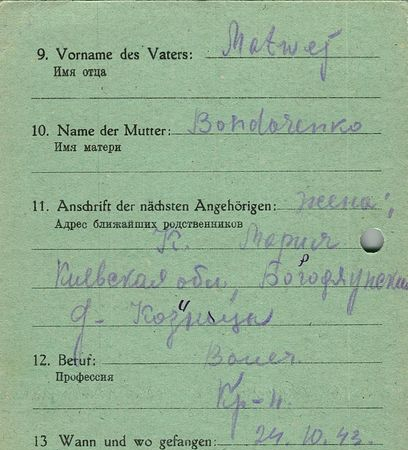 9. Vorname des Vaters: Matwej
Имя отца
10. Name der Mutter: Bondarenko
Имя матери
11. Anschrift der nächsten Angehörigen: жена:,
Адрес ближайших родственников
К. Мария
Киевская обл,
д-
12. Beruf: Bauer
Профессия
Кр-н
13 Wann und wo gefangen: 24. 10. 43.